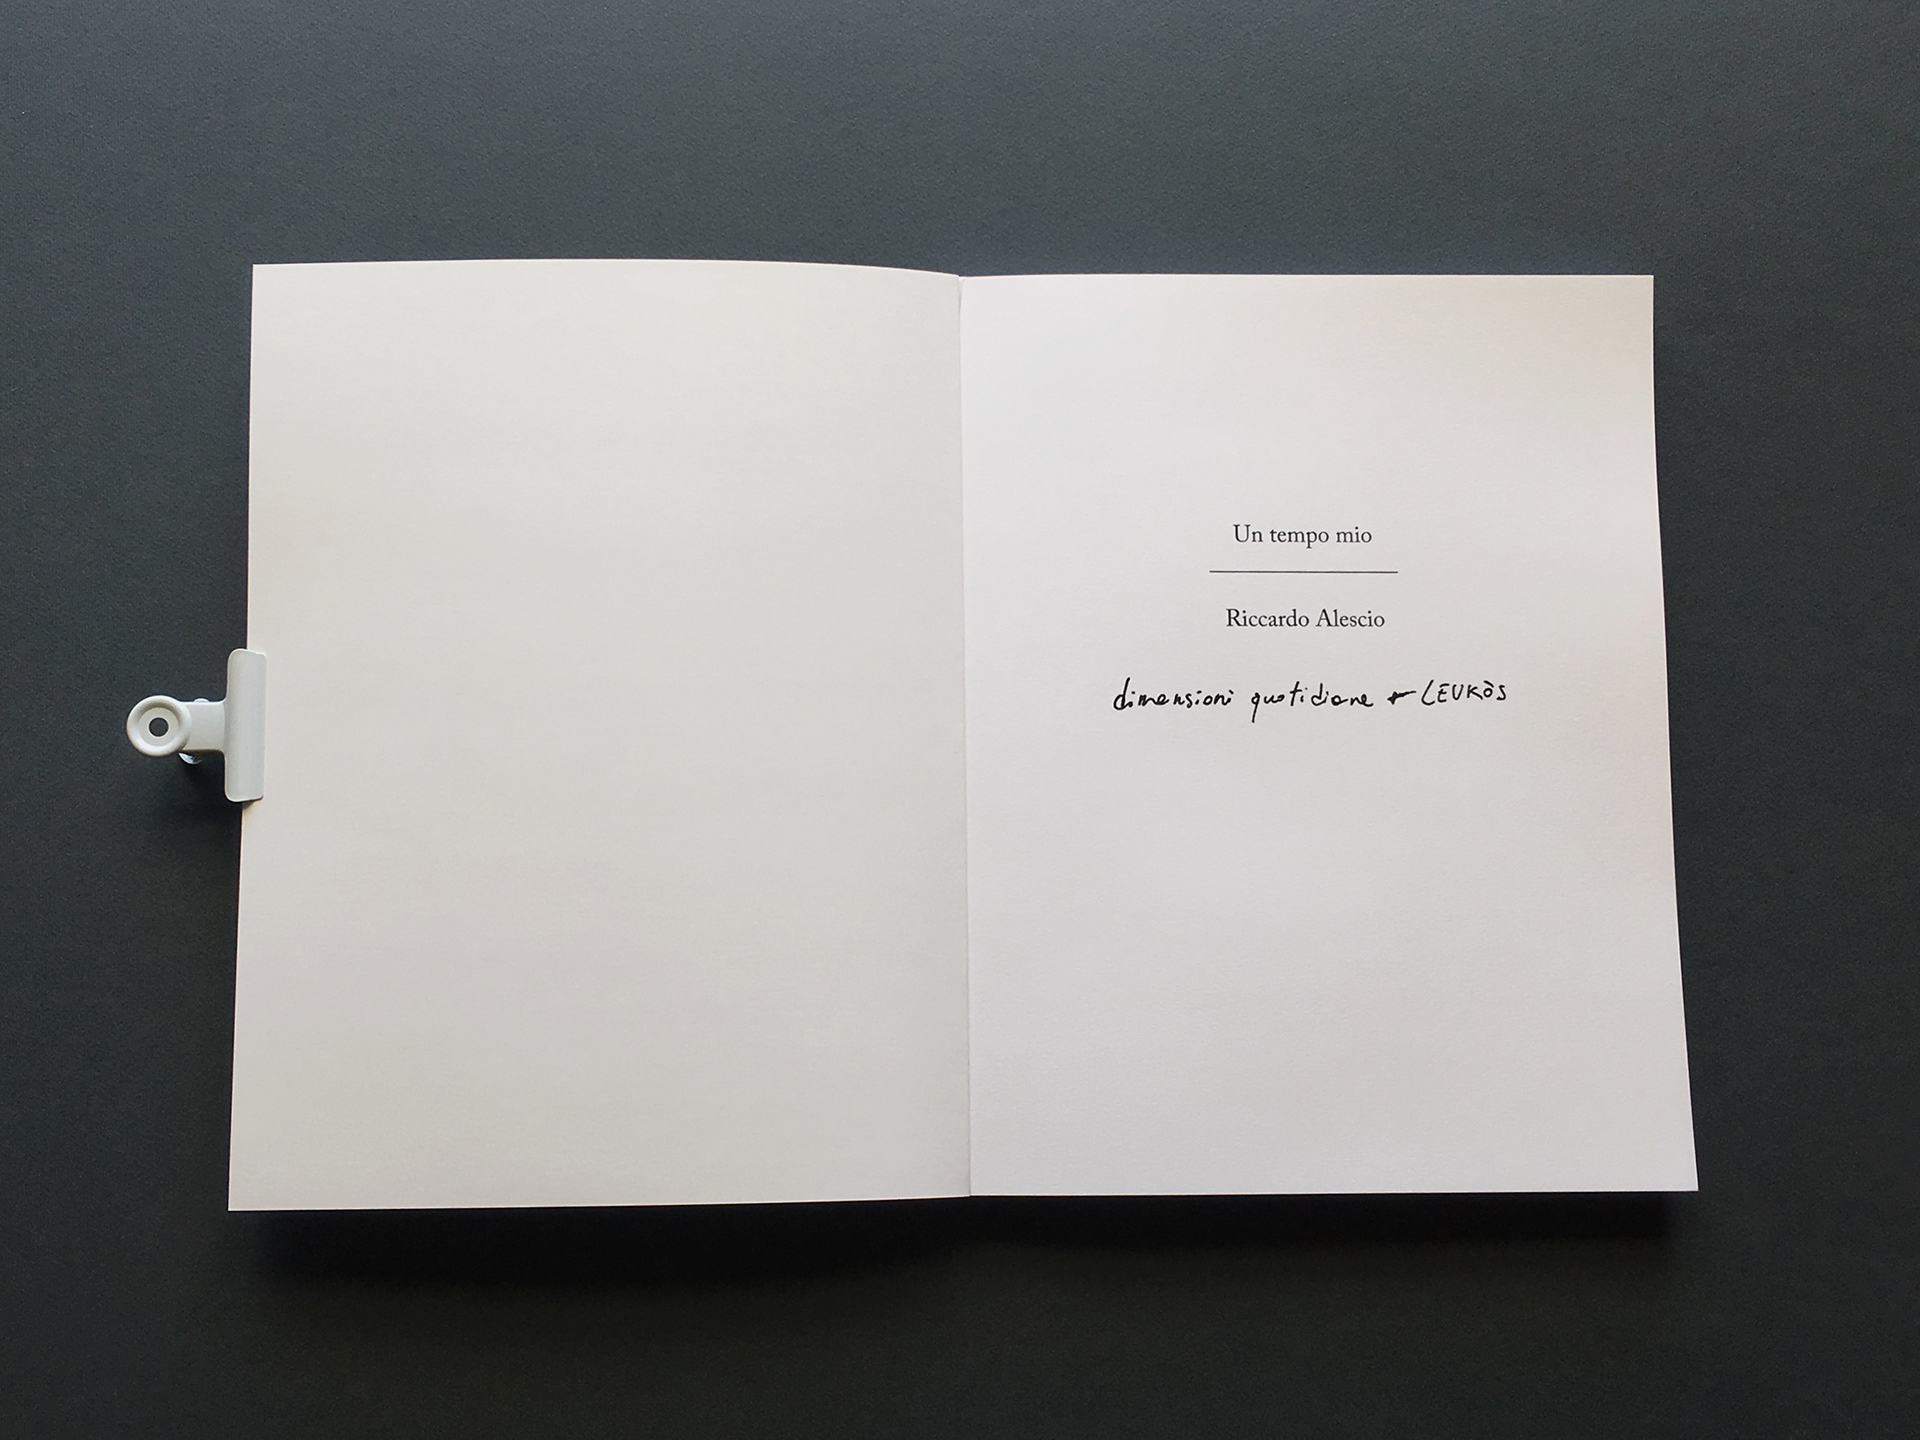 Un tempo mio
Riccardo Alescio
dimensioni quotidiane + LEUKÒS